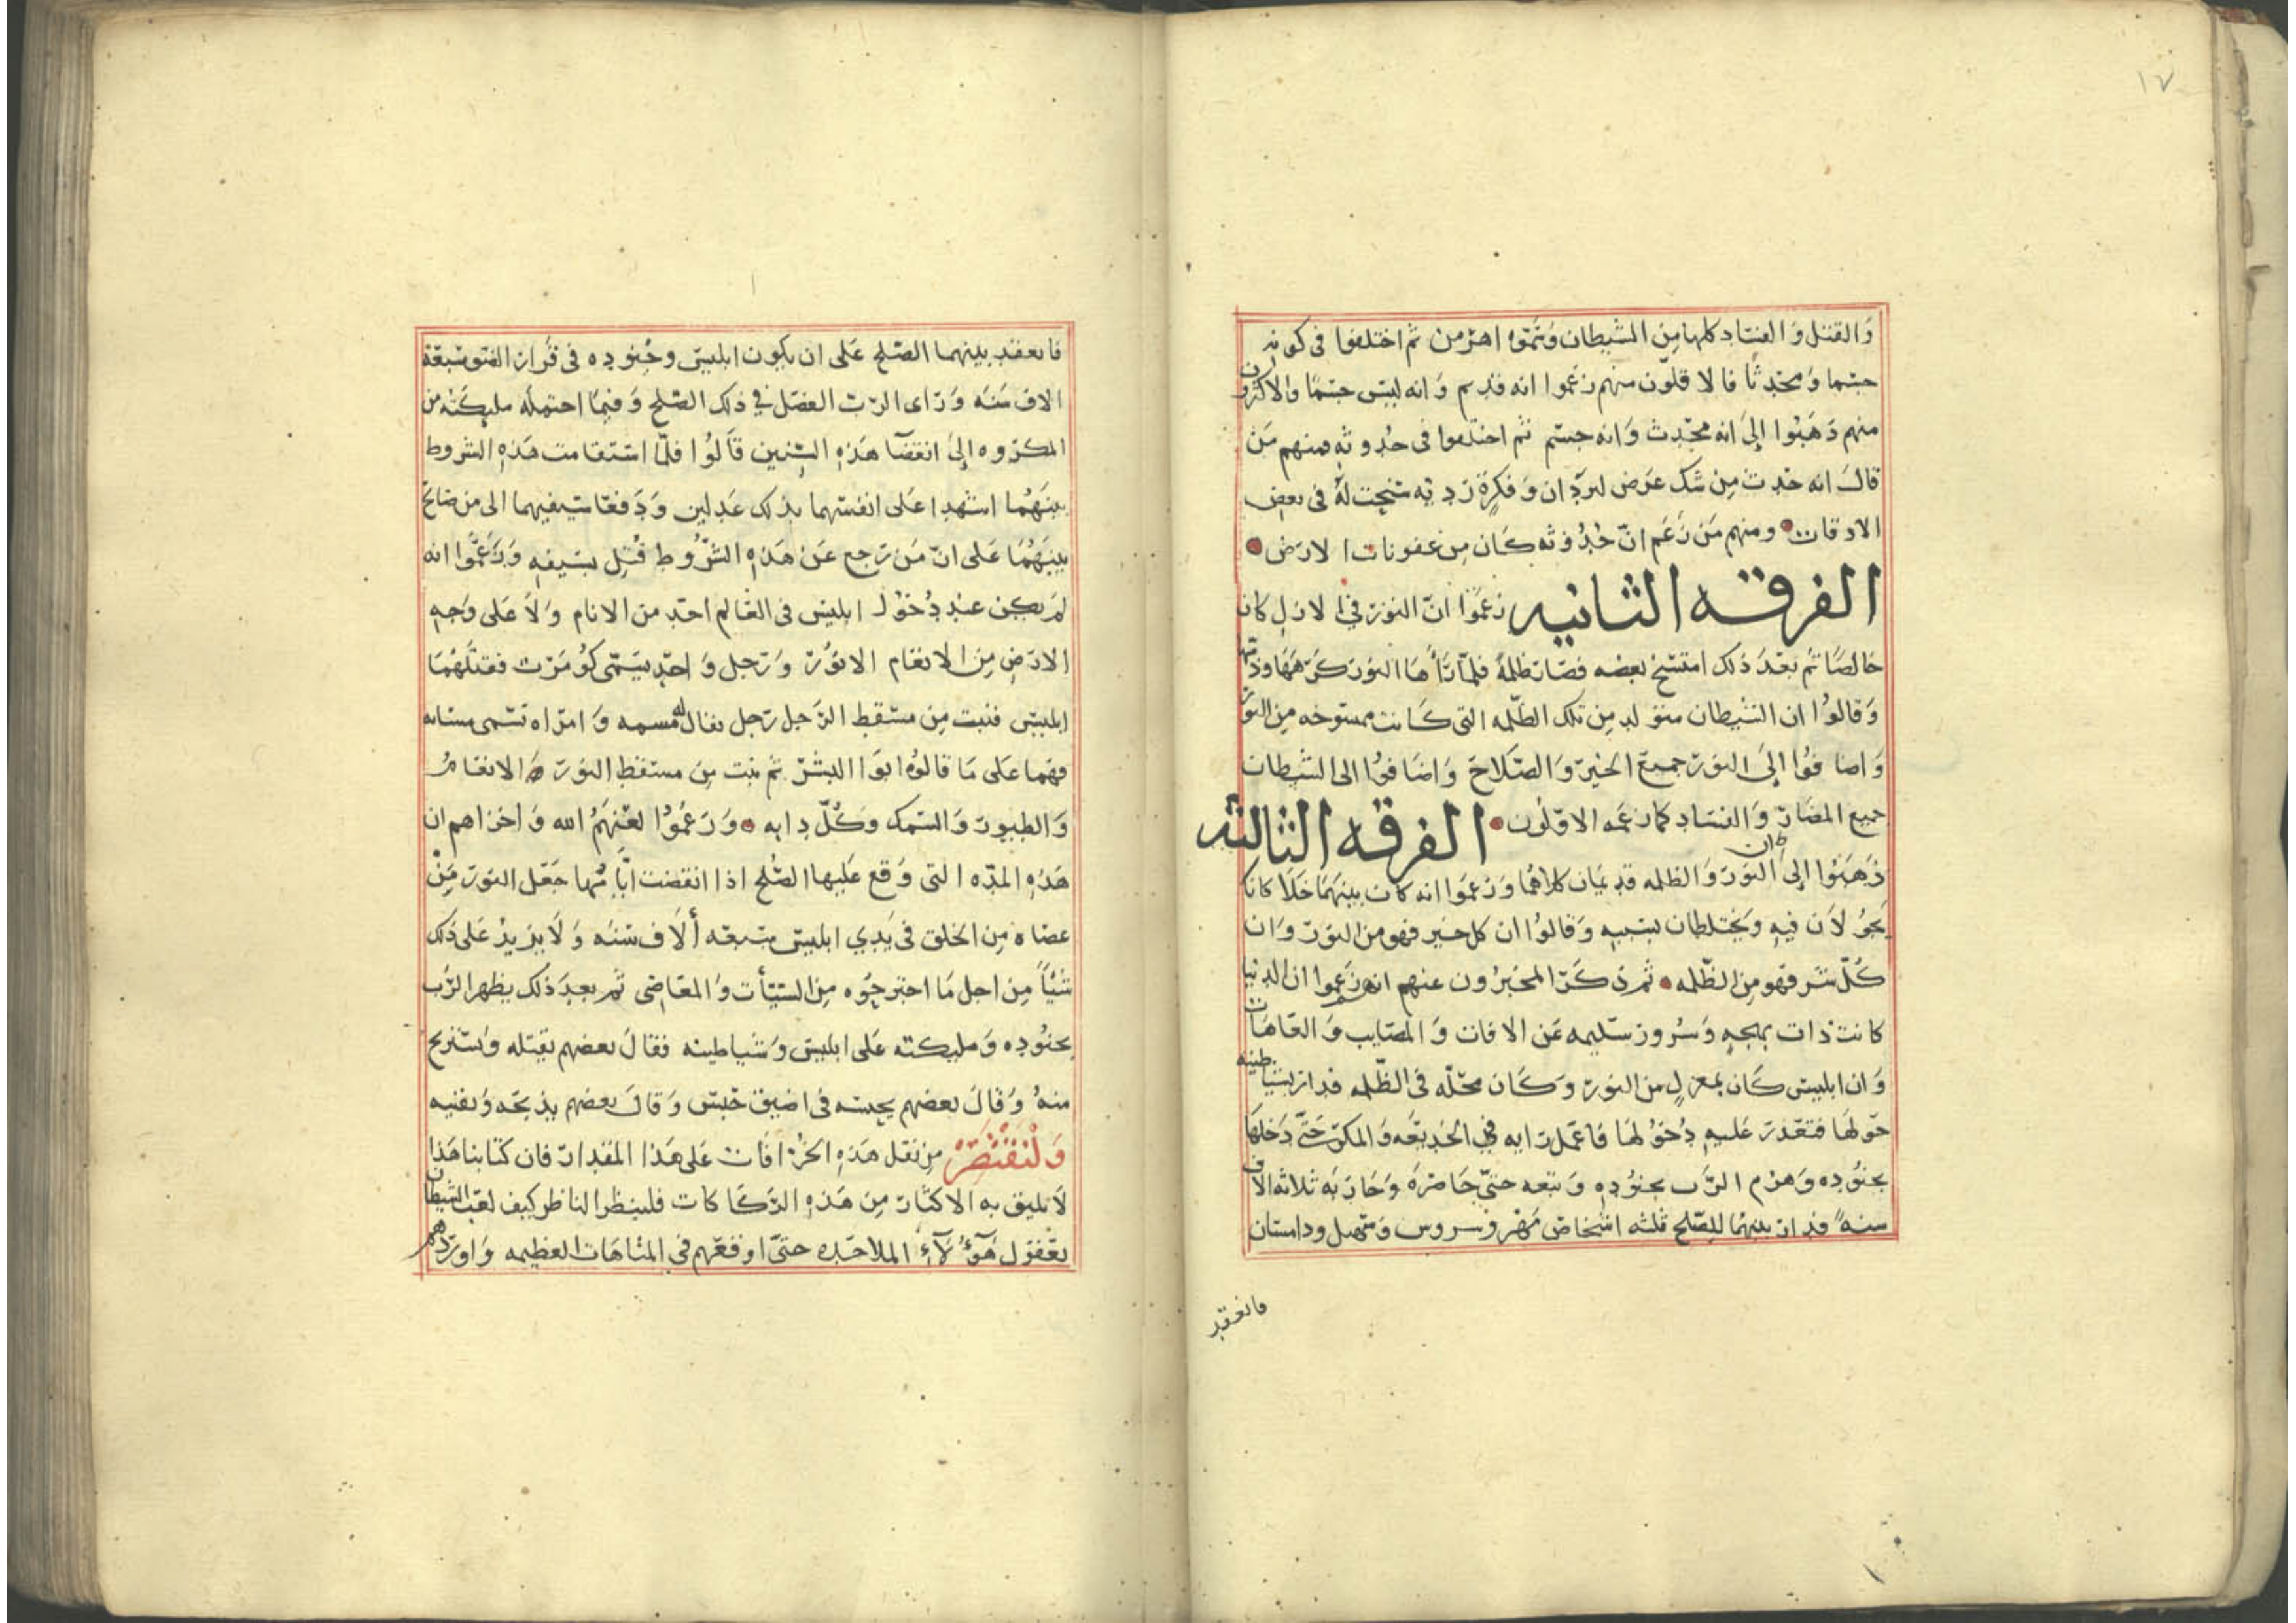 ١٧
وَالقتل وَالفسَاد كلها مِن الشيطان وَسَمَّوه اهرمن ثم اختلفوا فى كونه
جسما وَمحدثًا فالاقلّون منهم زعَموا انه قديم وَانه ليس جسمًا والاكثرون
منهم ذَهَبُوا إلىَ انه محدِث وَانه جسم ثم اختلفوا فى حُدوثه فمنهم مَن
قالَ انه حَدث مِن شك عَرَض ليزدان وَفكرةٍ رَديه سنحت لهُ فى بعض
الاوقات ومنهم مَن زَعَم انّ حُدُوثه كَان مِن عفونات الارَض
الفرقه الثانيه زعَمَوا انّ النور في الازلِ كان
خالصًا ثم بعَدَ ذلك امتسخ بعضه فصَار ظلمةً فلمّا رَأهَا النورَ كرَهَهَا وذمّها
وَقالوُا ان الشيطان متولد مِن تلك الظلمه التى كانت ممسوخه مِن النور
وَاضافوُا إلىَ النور جميعَ الخير وَالصّلاحَ وَاضَافوُا الى الشيطان
جميع المضَار وَالفسَاد كما زعمَه الاوّلوُن الفرقه الثالثه
ذَهَبُوا إلىَ ان النوَر وَالظلمه قديمَان كلاهُما وَزعَمَوا انه كان بينهَما خلاَ كانا
يجَوُلاَن فيهِ وَيختلطان بسَببهِ وَقالوُا ان كل خيَر فهو من النورَ وَان
كلّ شر فهَو مِن الظلمه ثم ذكَرَ المخبرُون عنهم انهم زَعموا ان الدنيا
كانت ذات بهجهٍ وَسُرور سَليمه عَن الافات وَالمصَايب وَالعَاهَات
وَان ابليسَ كَان بمعزلٍ من النورَ وَكَان محَلّه فى الظلمه فدار بشياطينه
حَولهَا فتعَذر عَليهِ دُخُولهَا فاعمَل رَايه في الخديعَه وَالمكر حَتّى دَخلهَا
بجنوُده وَهزم الرَّب بجنوُدهِ وَتبعه حتىّ حَاصَرهَ وَحَارَبه ثلاثه الاف
سنهً فدار بينهمُا للصّلح ثلثه اشخاص مَهر وسروس وَمتهيل ودامستان
فانعقد
فانعقد بينهما الصّلح عَلى ان يكون ابليسَ وجُنوده فى قرَار الفتو سَبعَة
الاف سَنَه وَرَاى الرّب الفضَل في ذلك الصّلح وَفيما احتمله مليكته من
المكرَوه إلىَ انقضآ هَذهِ السّنين قاَلوُا فلمّا استقامت هَذهِ الشروط
بينهَمُا اشهدا عَلى انفسهما بذلك عَدلين وَدَفعَا سَيفيهما الى من صَالحَ
بينهَمُا عَلى انّ مَن رَجع عَن هَذهِ الشرُوط قُتِل بسَيفهِ وَزَعمَوا انه
لم يكن عند دُخوُل ابليسَ فى العَالم احَد من الانام وَلاَ عَلى وَجهِ
الارَض مِن الانعَام الاثوُر وَرَجل وَاحدٍ يسَمّى كوُمَرت فقتلهُما
ابليس فنبت مِن مسقط الرّجل رَجل يقال له مسمه وَامرَاه تسَمى مسانه
فهما عَلى مَا قالوُه ابوَا البشر ثم نبت مِن مسقط النور الانعَامُ
وَالطيور وَالسّمك وَكُلّ دابه وَزعَموُا لعَنهَمُ الله وَاخزاهم ان
هَذهِ المدّه التى وَقع عَليها الصّلح اذا انقضت ايَّامُها جعَل النور مَن
عصَاه مِن الخلق فى يَدي ابليسَ سَبعه ألاَف سَنَه وَلاَ يزيدُ على ذلك
شيئاً مِن اجل مَا اجترحُوه مِن السّيّئات وَالمعَاصى ثم بعدَ ذلك يظهر الرَّب
بجنوُدهِ وَمليكته عَلى ابليسَ وَشياطينه فقالَ بعضهم يقتله وَيستريح
منهُ وَقالَ بعضهم يحبسَه فى اضيق حَبسَ وَقالَ بعضهم يذبحَه وَيفنيه
وَلْنَقْتَصِرْ مِن نقل هَذهِ الخرَافات عَلى هَذا المقدار فان كتابنا هَذا
لاَ يليق به الاكثار مِن هَذهِ الرَّكاكات فلينظر الناظر كيف لعَب الشيطان
بعَقول هَآؤُلآءِ الملاحَده حتىّ اوقعَهم في المتاهَات العظيمه وَاوردَهم